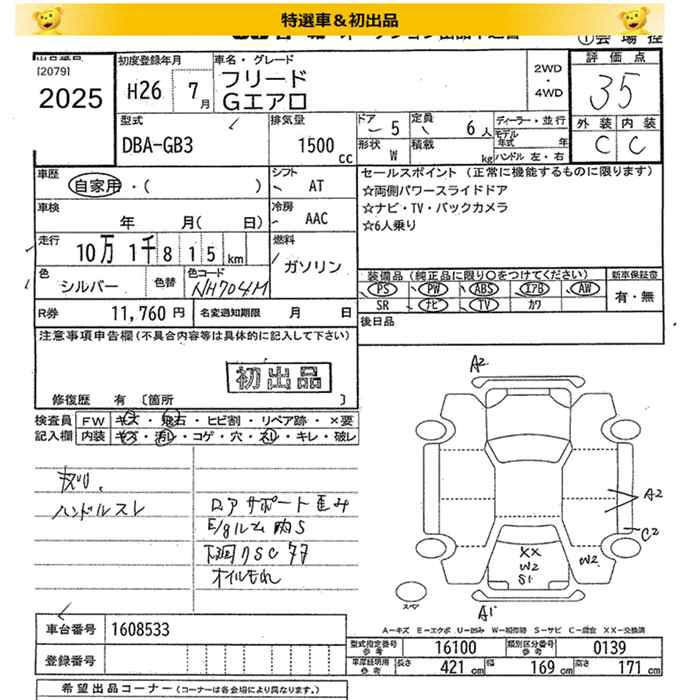 特選車＆初出品
評価点
[2079]
2025
初度登録年月
H26 7月
車名・グレード
フリード
Gエアロ
2WD
・
4WD
35
型式
DBA-GB3
排気量
1500 cc
ドア 5
定員 6人
形状 W
積載 kg
ディーラー・並行
モデル年式 年
ハンドル 左・右
外装 内装
C C
車歴
自家用・( )
シフト
AT
車検
年 月( 日)
冷房
AAC
走行
10万 1千815 km
燃料
ガソリン
色
シルバー
色替
色コード
NH704M
R券 11,760円
名変通知期限 月 日
セールスポイント (正常に機能するものに限ります)
☆両側パワースライドドア
☆ナビ・TV・バックカメラ
☆6人乗り
装備品(純正品に限り○をつけてください)
新車保証書
PS PW ABS エアB AW
SR ナビ TV カワ
有・無
後日品
注意事項申告欄(不具合内容等は具体的に記入して下さい)
初出品
修復歴 有〔箇所 〕
検査員記入欄
FW キズ・飛石・ヒビ割・リペア跡・×要
内装 キズ・汚レ・コゲ・穴・スレ・キレ・破レ
ハンドルスレ
ロアサポート歪み
E/gルーム内S
下廻りSC
オイルもれ
A2
A2
C2
XX
W2
S1
W2
A1
スペア
車台番号 1608533
登録番号
A－キズ E－エクボ U－凹ミ W－補修跡 S－サビ C－腐食 XX－交換済
型式指定番号参考 16100
類別区分番号参考 0139
車庫証明用参考 長さ 421cm 幅 169cm 高さ 171cm
希望出品コーナー(コーナーは各会場により異なります。)